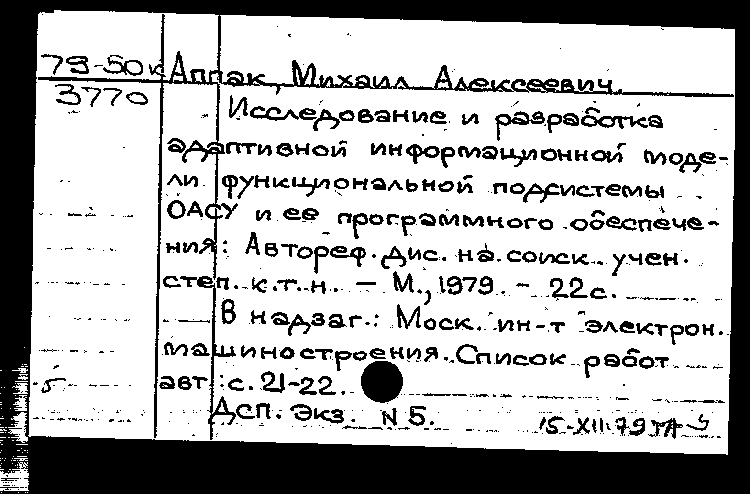 79-50к Аппак, Михаил Алексеевич.
3770
Исследование и разработка
адаптивной информационной моде-
ли функциональной подсистемы
ОАСУ и ее программного обеспече-
ния: Автореф. дис. на соиск. учен.
степ. к.т.н. — М., 1979. - 22с.
В надзаг.: Моск. ин-т электрон.
машиностроения. Список работ
авт.: с. 21-22.
Дсп. Экз. N 5.
15-XII-79